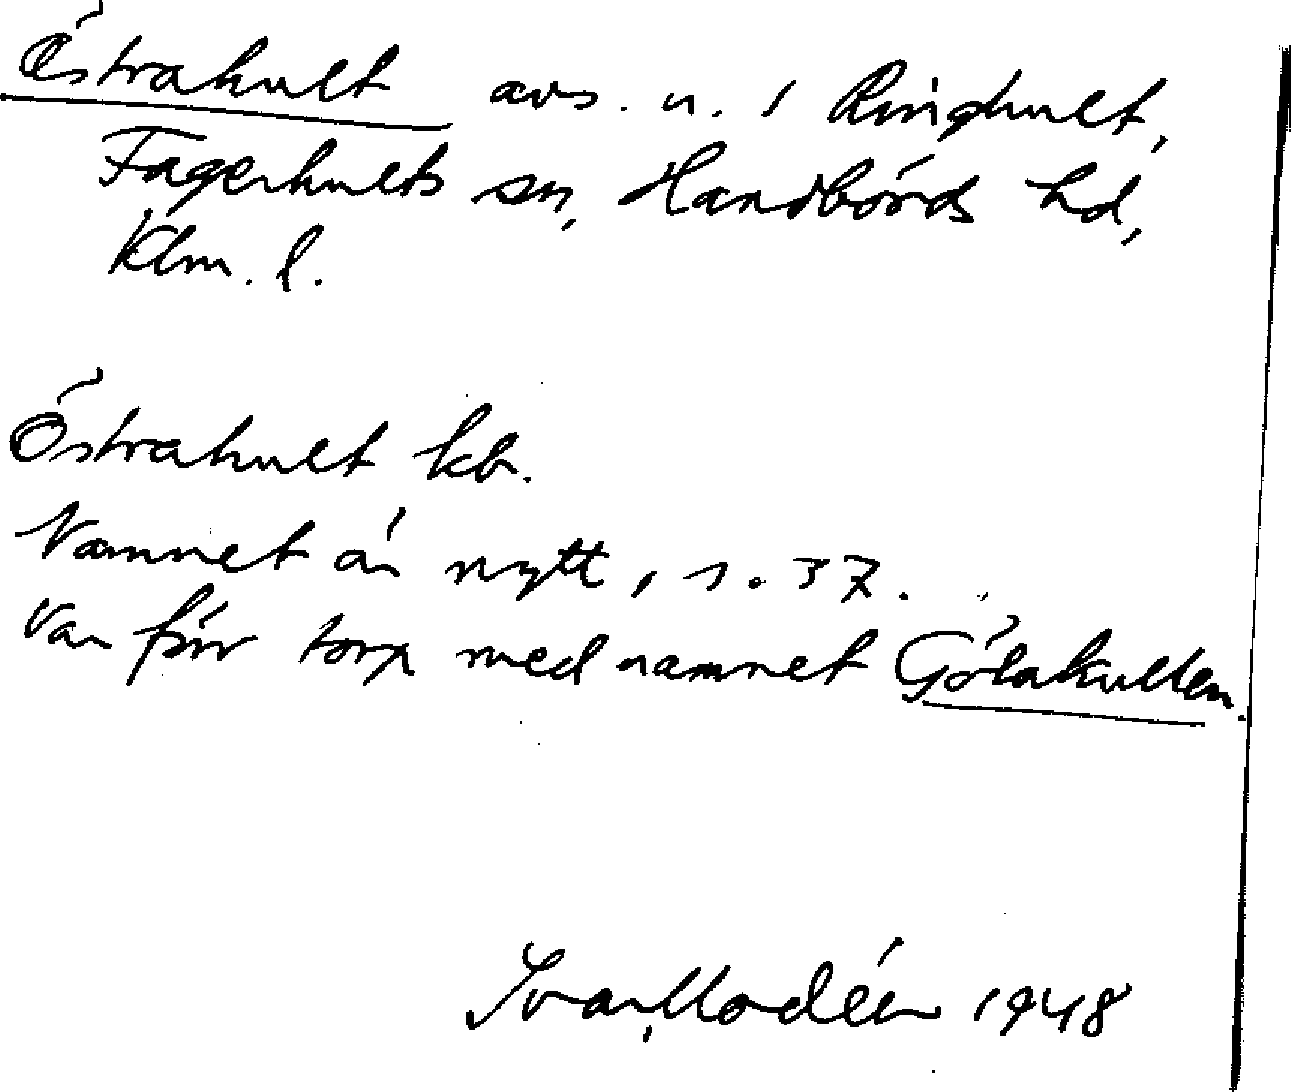 Östrahult avs. u. i Ringhult,
Fagerhults sn, Handbörds hd,
Klm. l.
Östrahult kb.
Namnet är nytt, s. 37.
Var förr torp med namnet Götakullen.
Ivar Modéer 1948